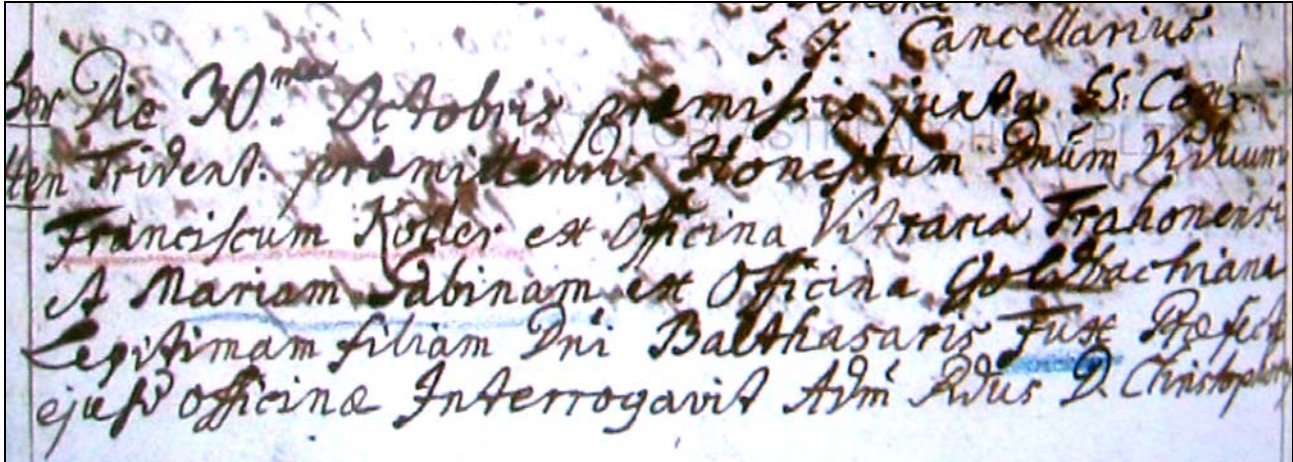 S. J. Cancellarius.
Die 30.ma Octobris præmissis juxta SS: Conc:
tten Trident. præmittendis Honestum Dnúm Viduum
Franciscum Koller ex Officina Vitraria Frahonensi
et Mariam Sabinam ex Officina Goldbachiana
Legitimam filiam Dni Balthasaris Fux Præfecti
ejusd officinæ Interrogavit Adm Rdus D. Christophorus